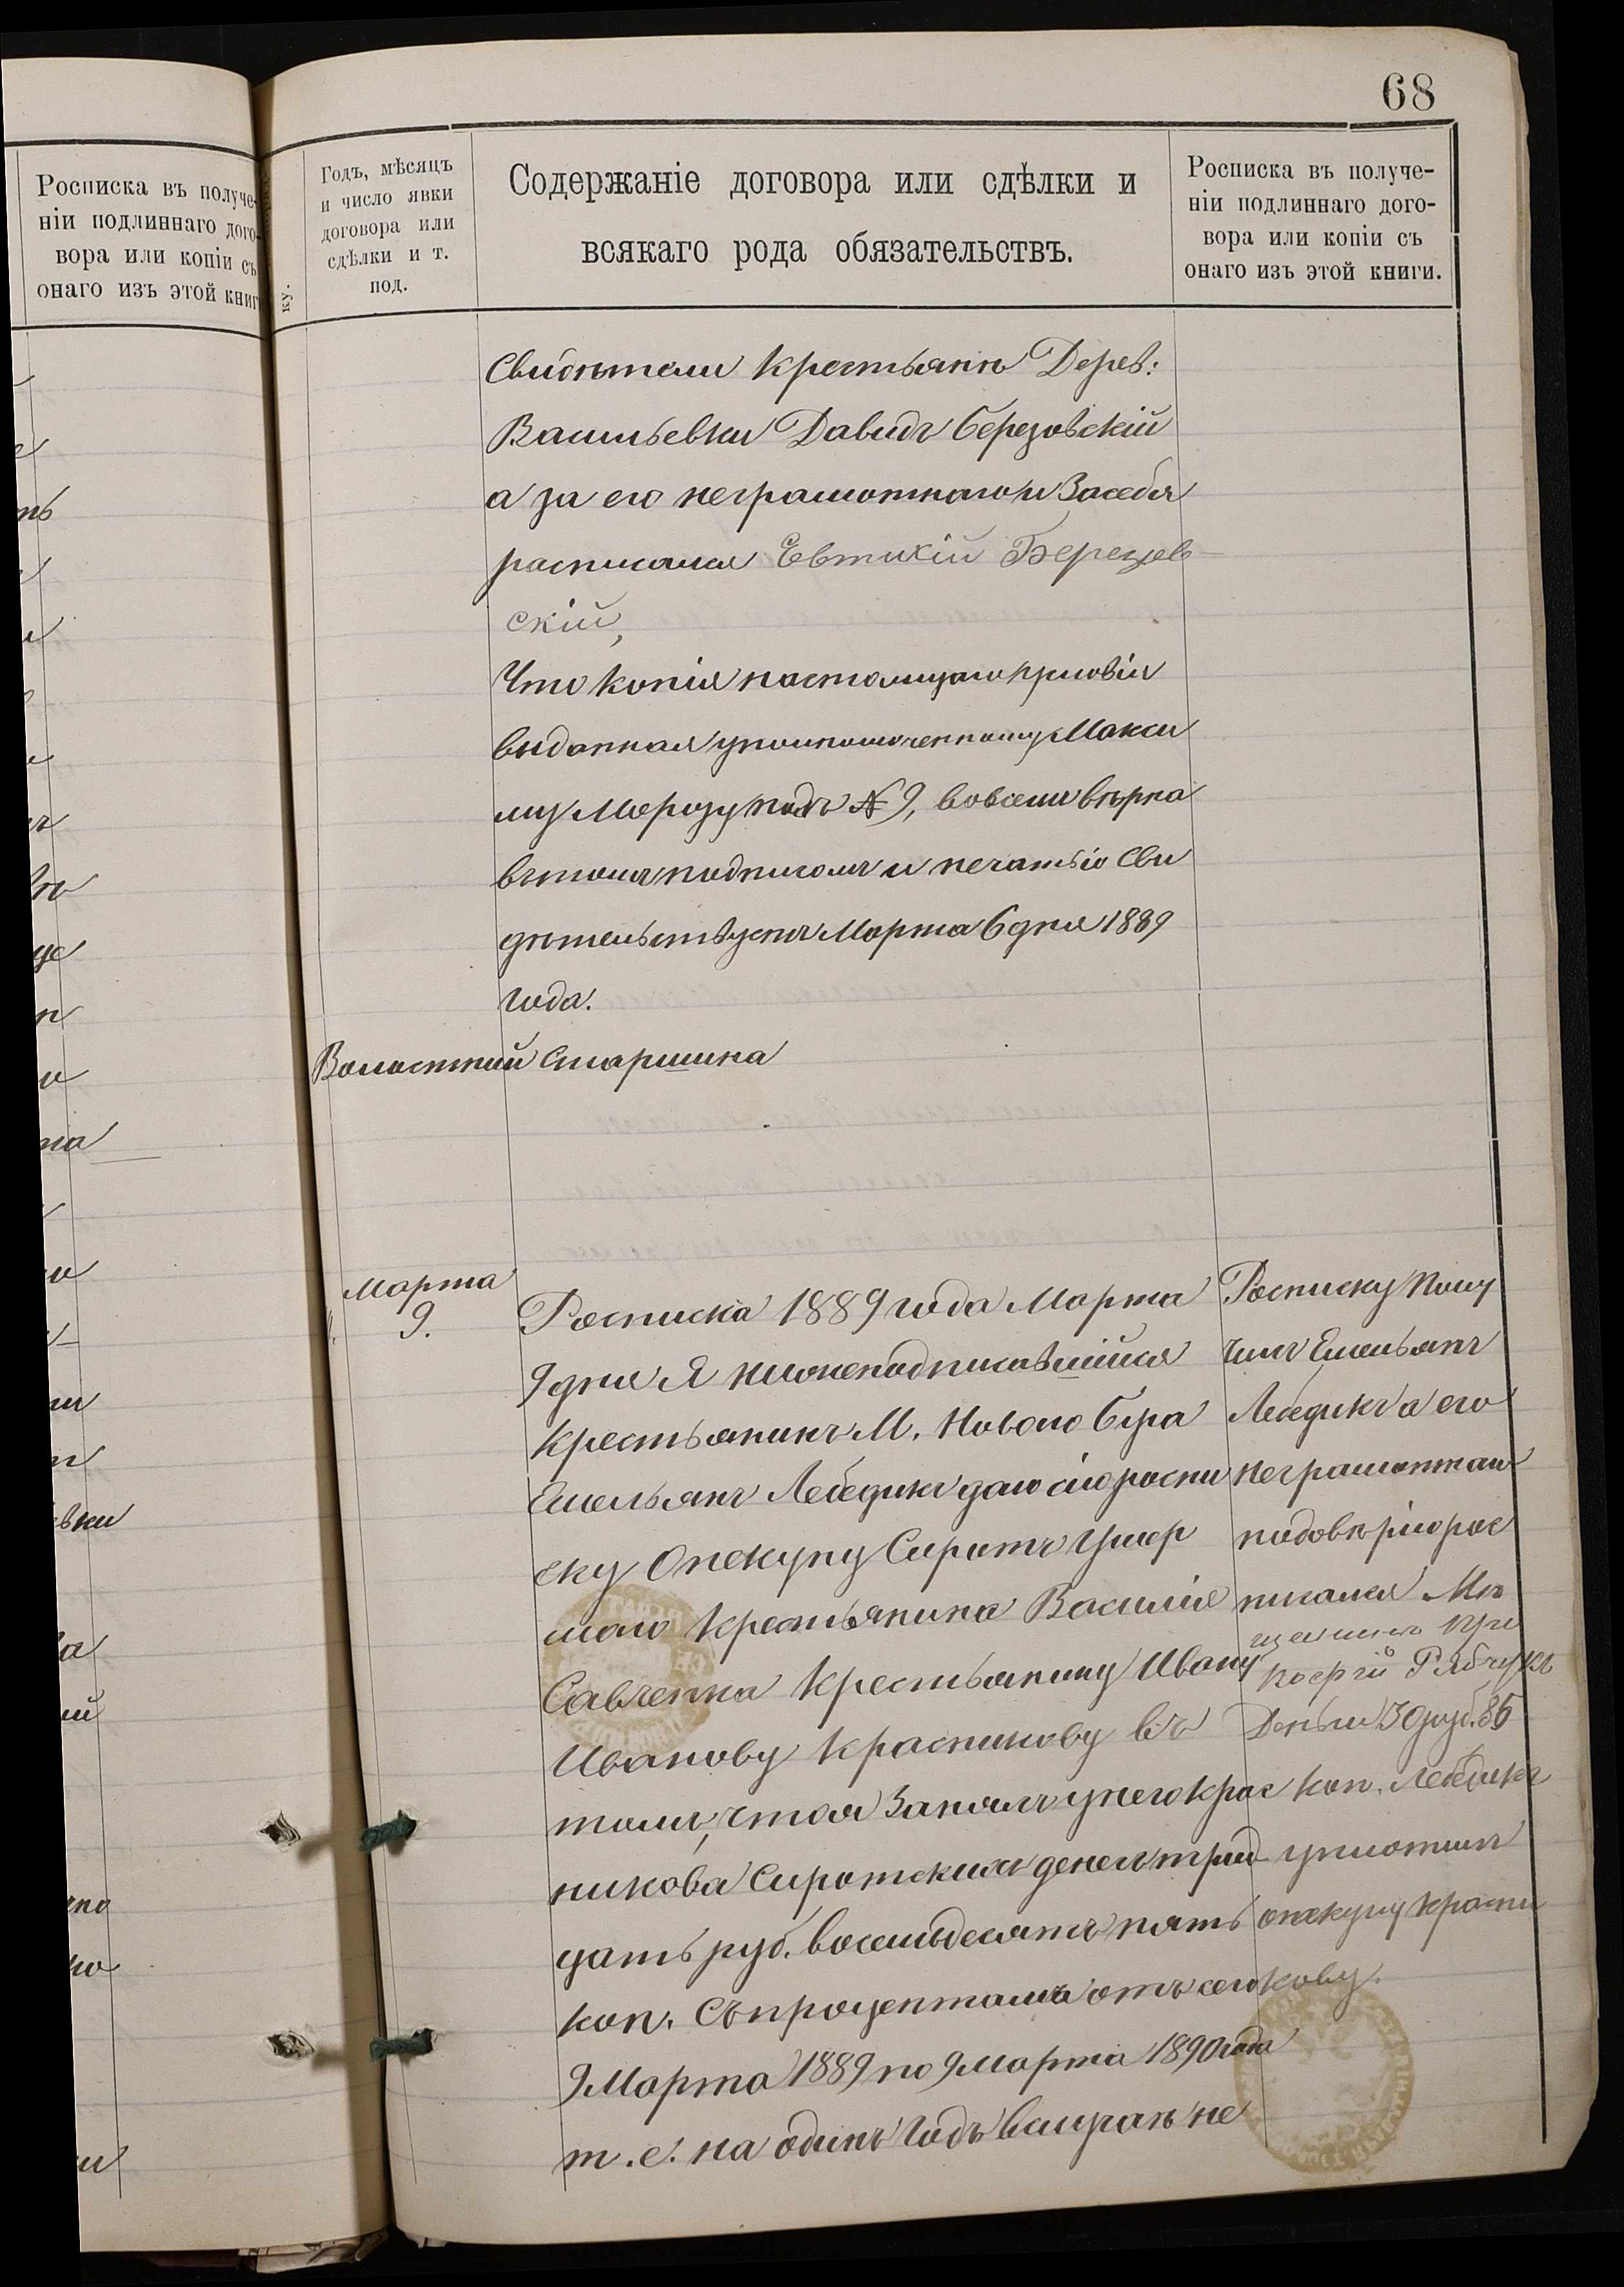 68
Росписка въ получе-
ніи подлиннаго дого-
вора или копіи съ
онаго изъ этой книг
ку.
Годъ, мѣсяцъ
и число явки
договора или
сдѣлки и т.
под.
Содержаніе договора или сдѣлки и
всякаго рода обязательствъ.
Росписка въ получе-
ніи подлиннаго дого-
вора или копіи съ
онаго изъ этой книги.
Свидѣтели крестьяне Дерев:
Васильевки Давидъ Березовскій
а за его неграмотнаго и За себя
расписался Евтихій Березов-
скій,
Что копія настоящаго условія
выданная уполномоченному Макси
му Морозу подъ № 9, вовсемъ вѣрна
вътомъ подписомъ и печатью Сви
дѣтельствуетъ Марта 6 дня 1889
года.
Волостной Старшина
Марта
9.
Росписка 1889 года Марта
9 дня Я нижеподписавшійся
крестьянинъ М. Новаго Буга
Емельянъ Лебедикъ даю сію роспи
ску Опекуну Сиротъ Умер
шаго крестьянина Василія
Савченка крестьянину Ивану
Иванову Красникову въ
томъ, что я Занялъ у него Крас
никова Сиротскихъ денегъ трид
цать руб. восемьдесятъ пять
коп. Съ процентами отъ сего
9 Марта 1889 по 9 Марта 1890 года
т. е. на одинъ Годъ вслучаѣ не
Росписку Полу
чилъ Емельянъ
Лебедикъ а его
неграмотнаго
подовѣрію рос
писался Мѣ
щанинъ
Рябчукъ
Деньги 30 руб. 85
коп. Лебедикъ
уплотилъ
опекуну Красни
кову.